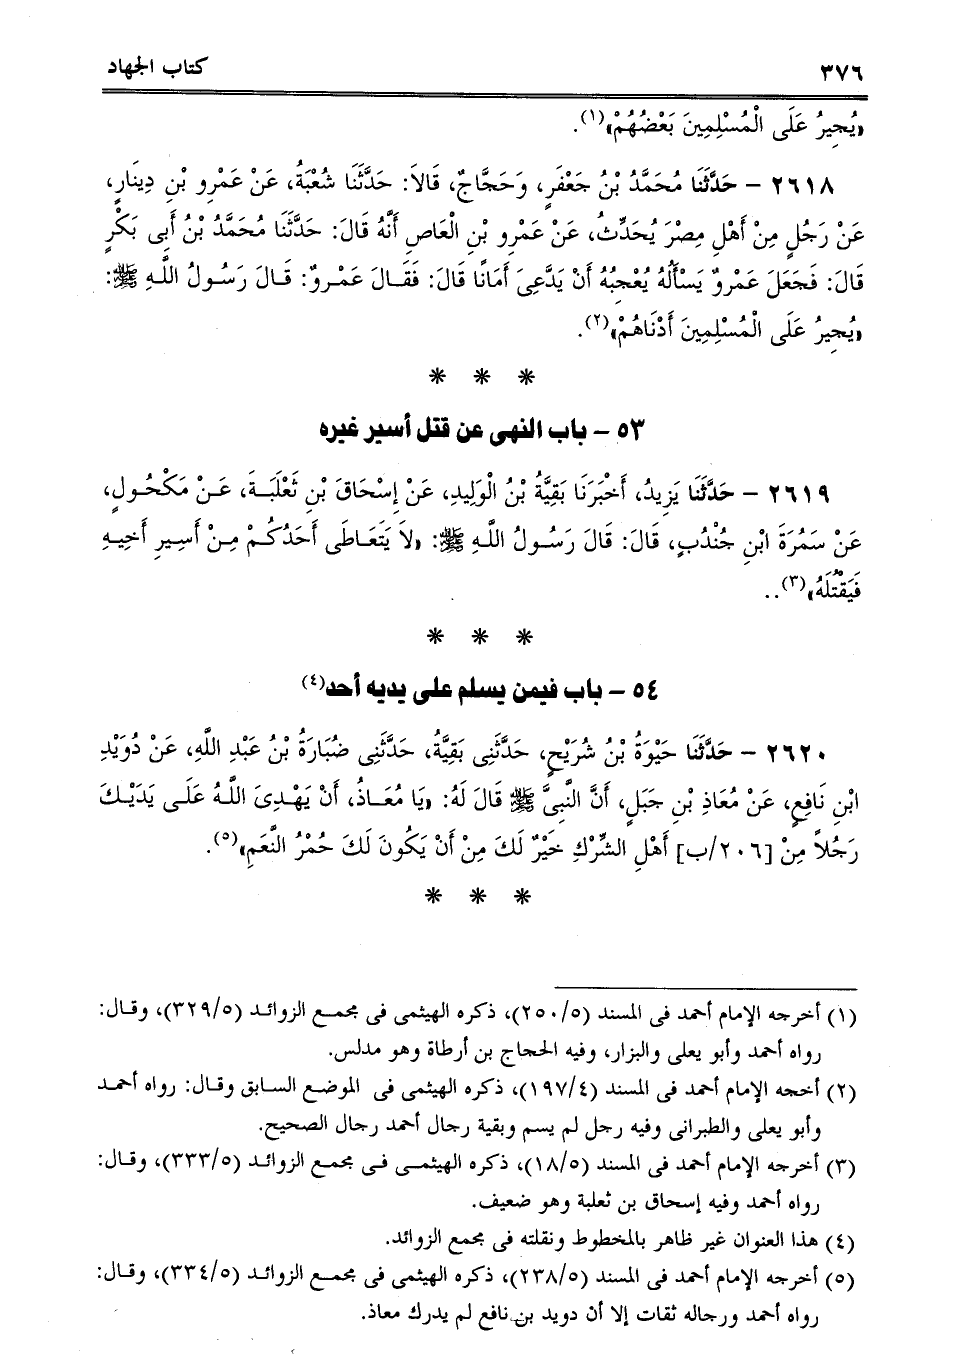 ٣٧٦ كتاب الجهاد
«يُجِيرُ عَلَى الْمُسْلِمِينَ بَعْضُهُمْ»(١).
٢٦١٨ – حَدَّثَنَا مُحَمَّدُ بْنُ جَعْفَرٍ، وَحَجَّاجٌ، قَالاَ: حَدَّثَنَا شُعْبَةُ، عَنْ عَمْرِو بْنِ دِينَارٍ،
عَنْ رَجُلٍ مِنْ أَهْلِ مِصْرَ يُحَدِّثُ، عَنْ عَمْرِو بْنِ الْعَاصِ أَنَّهُ قَالَ: حَدَّثَنَا مُحَمَّدُ بْنُ أَبِى بَكْرٍ
قَالَ: فَجَعَلَ عَمْرٌو يَسْأَلُهُ يُعْجِبُهُ أَنْ يَدَّعِىَ أَمَانًا قَالَ: فَقَالَ عَمْرٌو: قَالَ رَسُولُ اللَّهِ ﷺ:
«يُجِيرُ عَلَى الْمُسْلِمِينَ أَدْنَاهُمْ»(٢).
* * *
٥٣ – باب النهى عن قتل أسير غيره
٢٦١٩ – حَدَّثَنَا يَزِيدُ، أَخْبَرَنَا بَقِيَّةُ بْنُ الْوَلِيدِ، عَنْ إِسْحَاقَ بْنِ ثَعْلَبَةَ، عَنْ مَكْحُولٍ،
عَنْ سَمُرَةَ ابْنِ جُنْدُبٍ، قَالَ: قَالَ رَسُولُ اللَّهِ ﷺ: «لاَ يَتَعَاطَى أَحَدُكُمْ مِنْ أَسِيرِ أَخِيهِ
فَيَقْتُلَهُ»(٣)..
* * *
٥٤ – باب فيمن يسلم على يديه أحد(٤)
٢٦٢٠ – حَدَّثَنَا حَيْوَةُ بْنُ شُرَيْحٍ، حَدَّثَنِى بَقِيَّةُ، حَدَّثَنِى ضُبَارَةُ بْنُ عَبْدِ اللَّهِ، عَنْ دُوَيْدِ
ابْنِ نَافِعٍ، عَنْ مُعَاذِ بْنِ جَبَلٍ، أَنَّ النَّبِىَّ ﷺ قَالَ لَهُ: «يَا مُعَاذُ، أَنْ يَهْدِىَ اللَّهُ عَلَى يَدَيْكَ
رَجُلاً مِنْ [٢٠٦/ب] أَهْلِ الشِّرْكِ خَيْرٌ لَكَ مِنْ أَنْ يَكُونَ لَكَ حُمْرُ النَّعَمِ»(٥).
* * *
(١) أخرجه الإمام أحمد فى المسند (٢٥٠/٥)، ذكره الهيثمى فى مجمع الزوائد (٣٢٩/٥)، وقال:
رواه أحمد وأبو يعلى والبزار، وفيه الحجاج بن أرطاة وهو مدلس.
(٢) أخجه الإمام أحمد فى المسند (١٩٧/٤)، ذكره الهيثمى فى الموضع السابق وقال: رواه أحمد
وأبو يعلى والطبرانى وفيه رجل لم يسم وبقية رجال أحمد رجال الصحيح.
(٣) أخرجه الإمام أحمد فى المسند (١٨/٥)، ذكره الهيثمى فى مجمع الزوائد (٣٣٣/٥)، وقال:
رواه أحمد وفيه إسحاق بن ثعلبة وهو ضعيف.
(٤) هذا العنوان غير ظاهر بالمخطوط ونقلته فى مجمع الزوائد.
(٥) أخرجه الإمام أحمد فى المسند (٢٣٨/٥)، ذكره الهيثمى فى مجمع الزوائد (٣٣٤/٥)، وقال:
رواه أحمد ورجاله ثقات إلا أن دويد بن نافع لم يدرك معاذ.